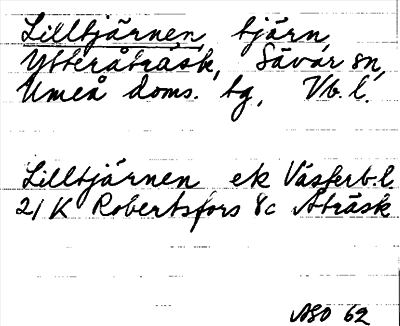 Lilltjärnen, tjärn,
Ytteråträsk, Sävar sn,
Umeå doms. tg, Vb. l.
Lilltjärnen ek Västerb. l.
21 K Robertsfors 8c Åträsk
ASO 62